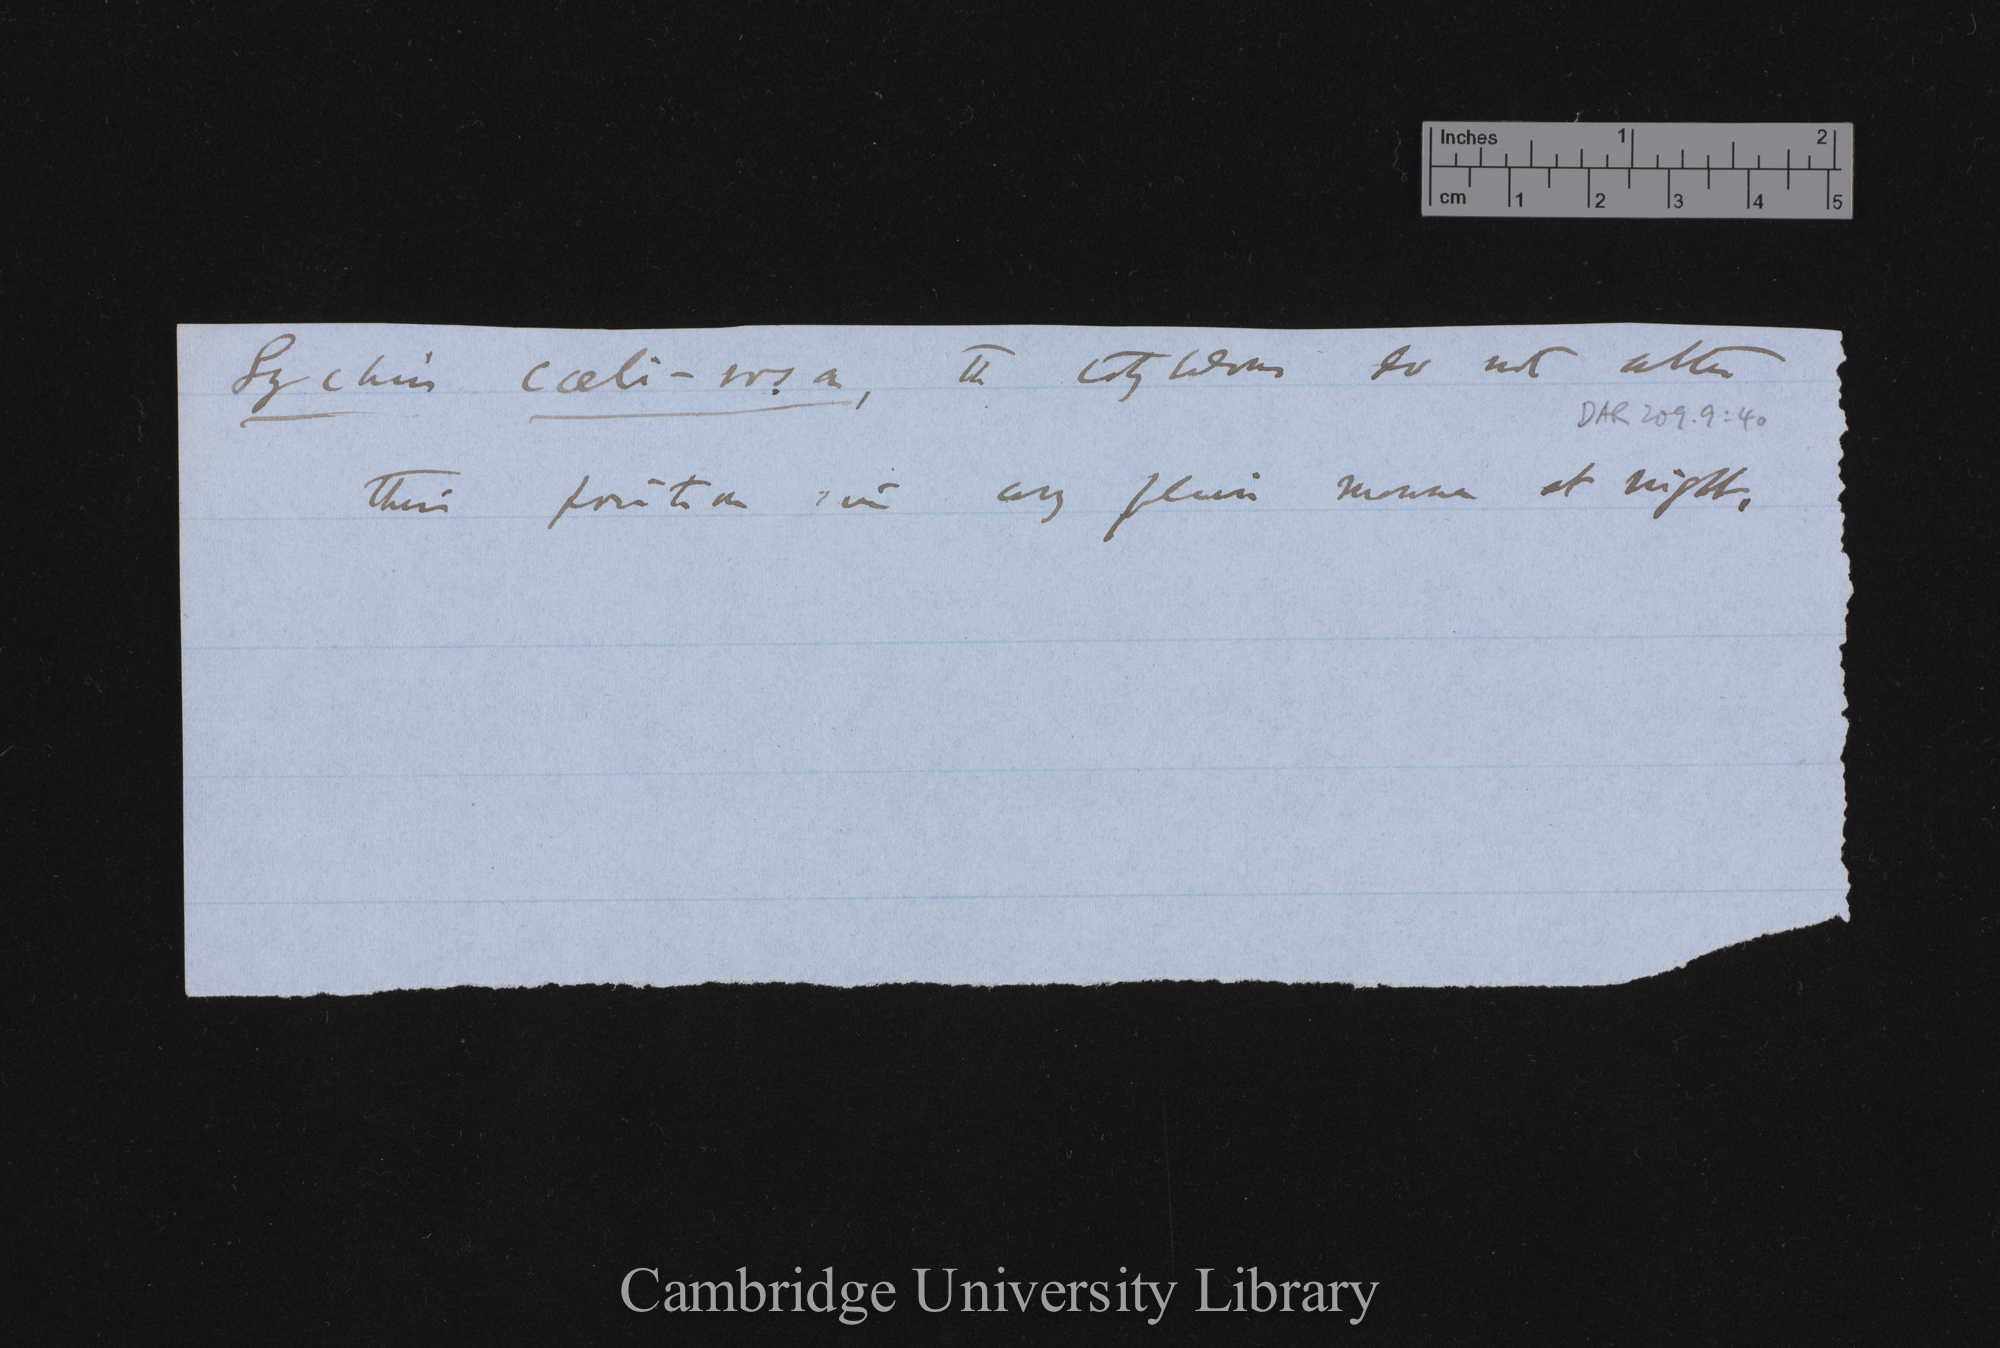 Inches 1 2
cm 1 2 3 4 5
Lychnis cœli-rosa, the cotyledons do not alter
DAR 209.9:40
their position in any plain manner at night.
Cambridge University Library